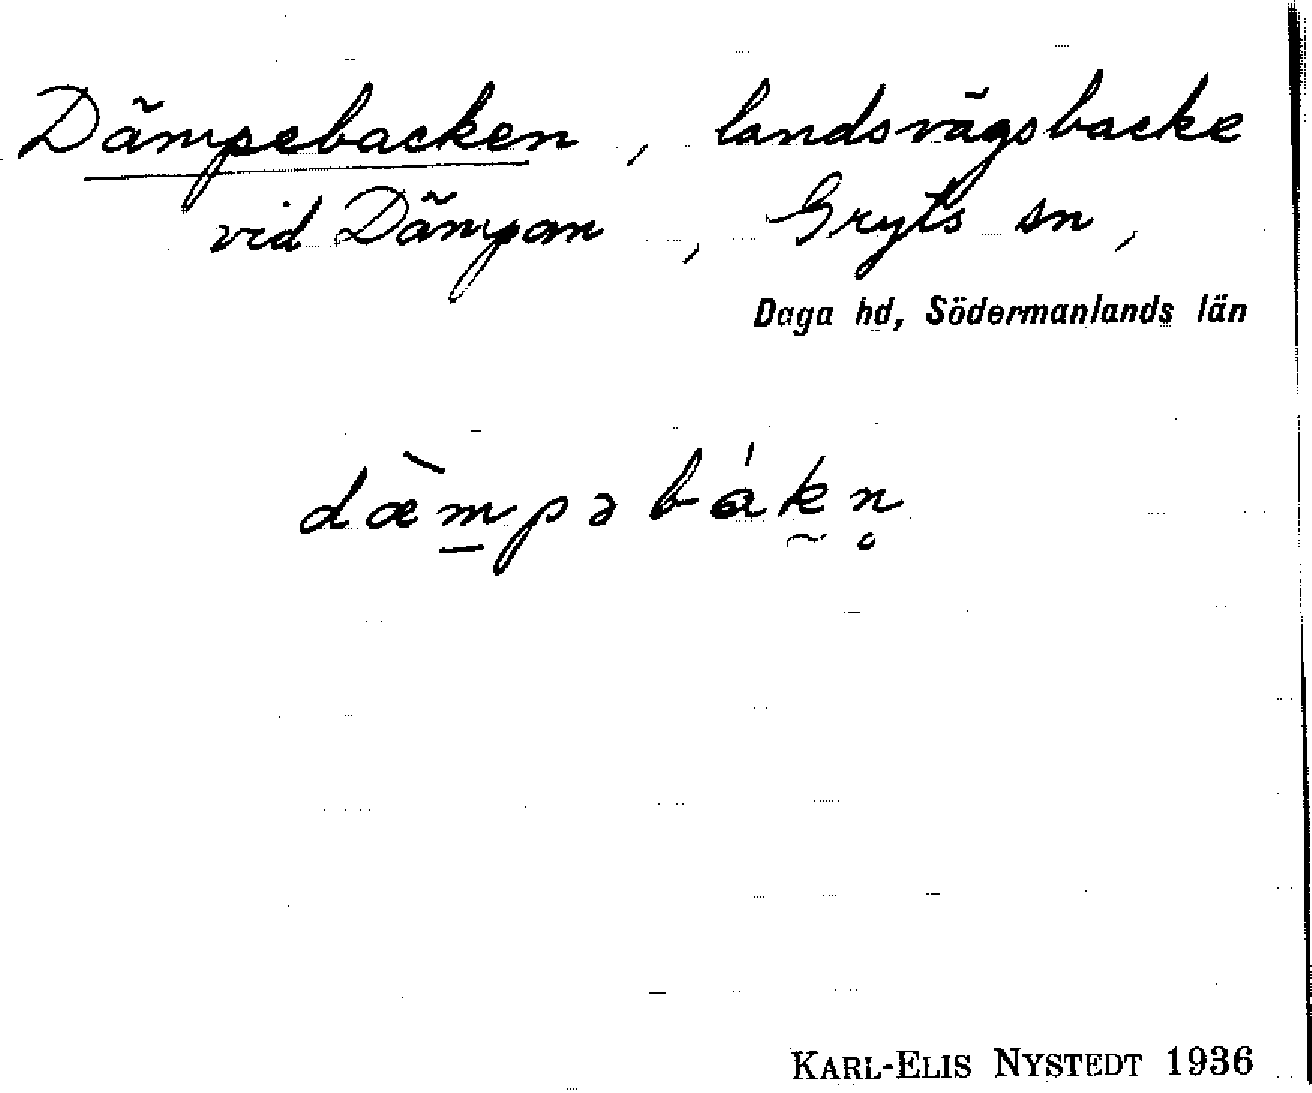 Dämpebacken, landsvägsbacke
vid Dämpan, Gryts sn,
Daga hd, Södermanlands län
dæ̀m̱pəbákn̥
KARL-ELIS NYSTEDT 1936